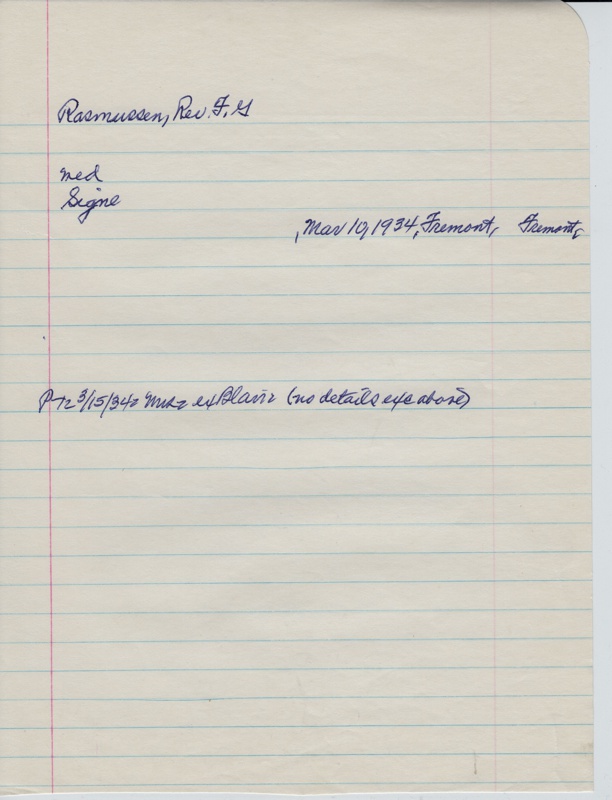 Rasmussen, Rev. F. G
med
Signe
, Mar 10, 1934, Fremont, Fremont,
3/15/34 ex Blair (no details exc above)